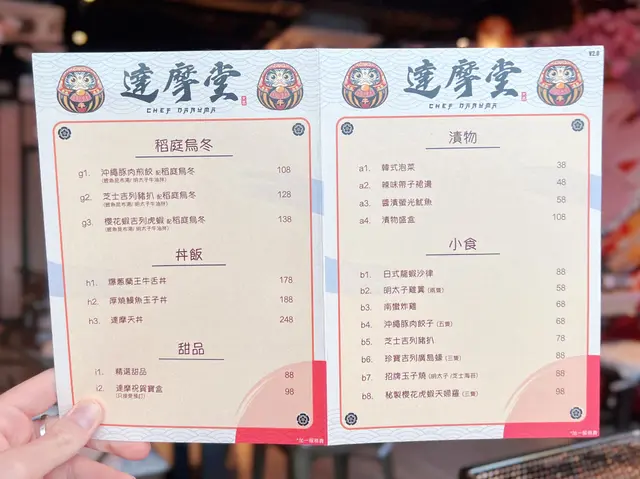 達摩堂
CHEF DARUMA
稻庭烏冬
g1. 沖繩豚肉煎餃 配稻庭烏冬 108
(鰹魚昆布湯/ 明太子牛油拌)
g2. 芝士吉列豬扒 配稻庭烏冬 128
(鰹魚昆布湯/ 明太子牛油拌)
g3. 櫻花蝦吉列虎蝦 配稻庭烏冬 138
(鰹魚昆布湯/ 明太子牛油拌)
丼飯
h1. 爆蔥蘭王牛舌丼 178
h2. 厚燒鰻魚玉子丼 188
h3. 達摩天丼 248
甜品
i1. 精選甜品 88
i2. 達摩祝賀寶盒 98
*加一服務費
V2.0
達摩堂
CHEF DARUMA
漬物
a1. 韓式泡菜 38
a2. 辣味帶子裙邊 48
a3. 醬漬螢光魷魚 58
a4. 漬物盛盒 108
小食
b1. 日式龍蝦沙律 38
b2. 明太子雞翼 (兩隻) 58
b3. 南蠻炸雞 68
b4. 沖繩豚肉餃子 (五隻) 68
b5. 芝士吉列豬扒 78
b6. 珍寶吉列廣島蠔 (三隻) 88
b7. 招牌玉子燒 (明太子 /芝士海苔) 88
b8. 秘製櫻花虎蝦天婦羅 (三隻) 98
*加一服務費